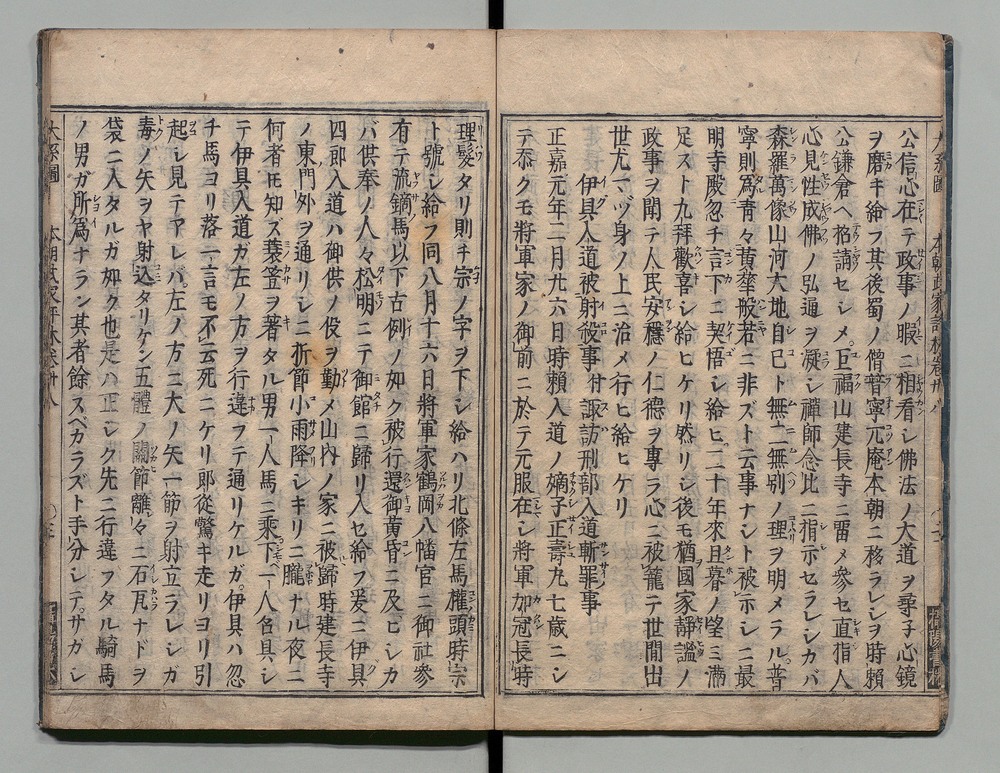 公信心在テ政事ノ暇ニ相看シ佛法ノ大道ヲ尋子心鏡
ヲ磨キ給フ其後蜀ノ僧普寧元庵本朝ニ移ラレシヲ時頼
公鎌倉ヘ招請セシメ巨福山建長寺ニ畱メ參セ直指人
心見性成佛ノ弘通ヲ凝シ禪師念比ニ指示セラレシカバ
森羅萬像山河大地自己ト無二無別ノ理ヲ明メラル普
寧則爲青々黄葉般若ニ非ズト云事ナシト被示シニ最
明寺殿忽チ言下ニ契悟シ給ヒ二十年來旦暮ノ望ミ滿
足スト九拜歡喜シ給ヒケリ然リシ後モ猶國家靜謐ノ
政事ヲ聞テ人民安穩ノ仁德ヲ專ラ心ニ被籠テ世間出
世尤一ヅ身ノ上ニ治メ行ヒ給ヒケリ
伊具入道被射殺事付諏訪刑部入道斬罪事
正嘉元年二月廿六日時頼入道ノ嫡子正壽丸七歳ニシ
テ忝クモ將軍家ノ御前ニ於テ元服在シ將軍加冠長時
理髮タリ則チ宗ノ字ヲ下シ給ハリ北條左馬權頭時宗
ト號シ給フ同八月十六日將軍家鶴岡八幡宮ニ御社參
有テ流鏑馬以下古例ノ如ク被行還御黄昏ニ及ビシカ
バ供奉ノ人々松明ニテ御館ニ歸リ入セ給フ爰ニ伊具
四郎入道ハ御供ノ役ヲ勤メ山内ノ家ニ被歸時建長寺
ノ東門外ヲ通リシニ折節小雨降シキリニ朧ナル夜ニ
何者トモ知ズ蓑笠ヲ著タル男一人馬ニ乘下一人召具シ
テ伊具入道ガ左ノ方ヲ行違フテ通リケルガ伊具ハ忽
チ馬ヨリ落一言モ不云死ニケリ郎從驚キ走リヨリ引
起シ見テアレバ左ノ方ニ大ノ矢一節ヲ射立ラレシガ
毒ノ矢ヲヤ射込タリケン五體ノ關節離々ニ石瓦ナドヲ
袋ニ入タルガ如ク也是ハ正シク先ニ行違フタル騎馬
ノ男ガ所爲ナラン其者餘スベカラズト手分シテサガシ